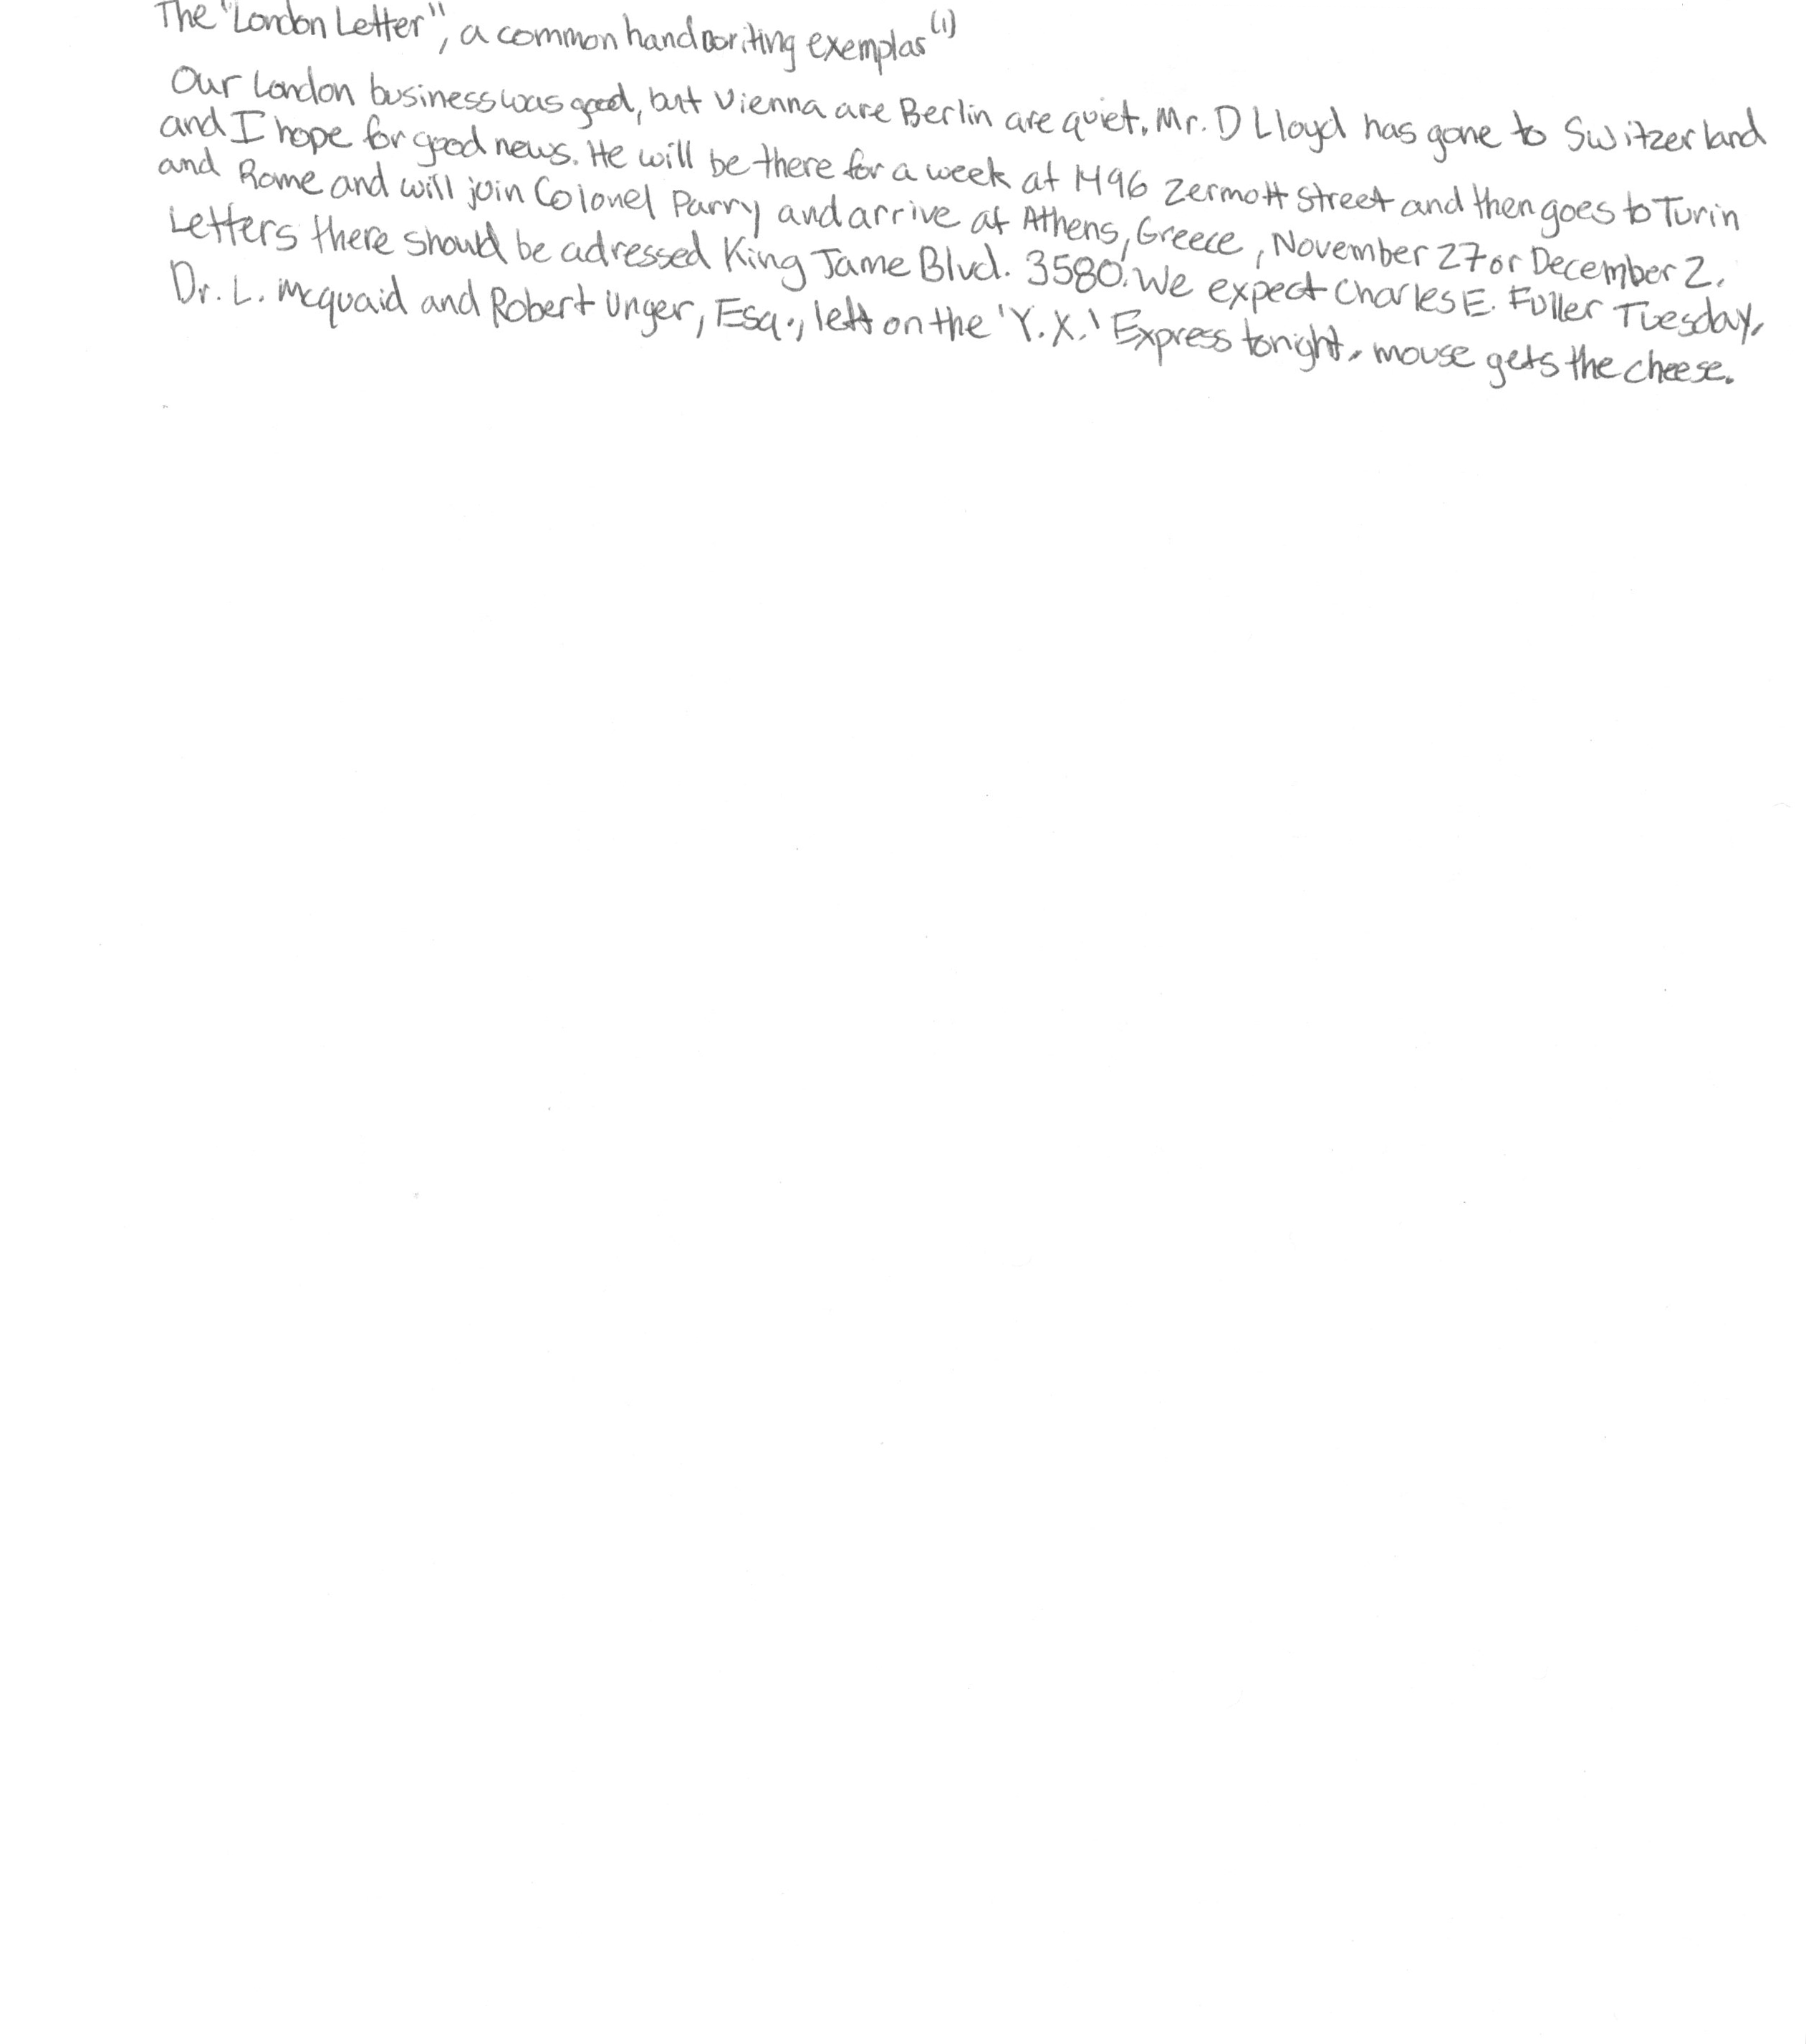 The "London Letter", a common handwriting exemplas (1)
Our London business was good, but Vienna are Berlin are quiet. Mr. D Lloyd has gone to Switzerland
and I hope for good news. He will be there for a week at 1496 Zermott Street and then goes to Turin
and Rome and will join Colonel Parry and arrive at Athens, Greece, November 27 or December 2.
Letters there should be adressed King Jame Blvd. 3580. We expect Charles E. Fuller Tuesday.
Dr. L. Mcquaid and Robert Unger, Esq., left on the 'Y.X.' Express tonight. mouse gets the cheese.